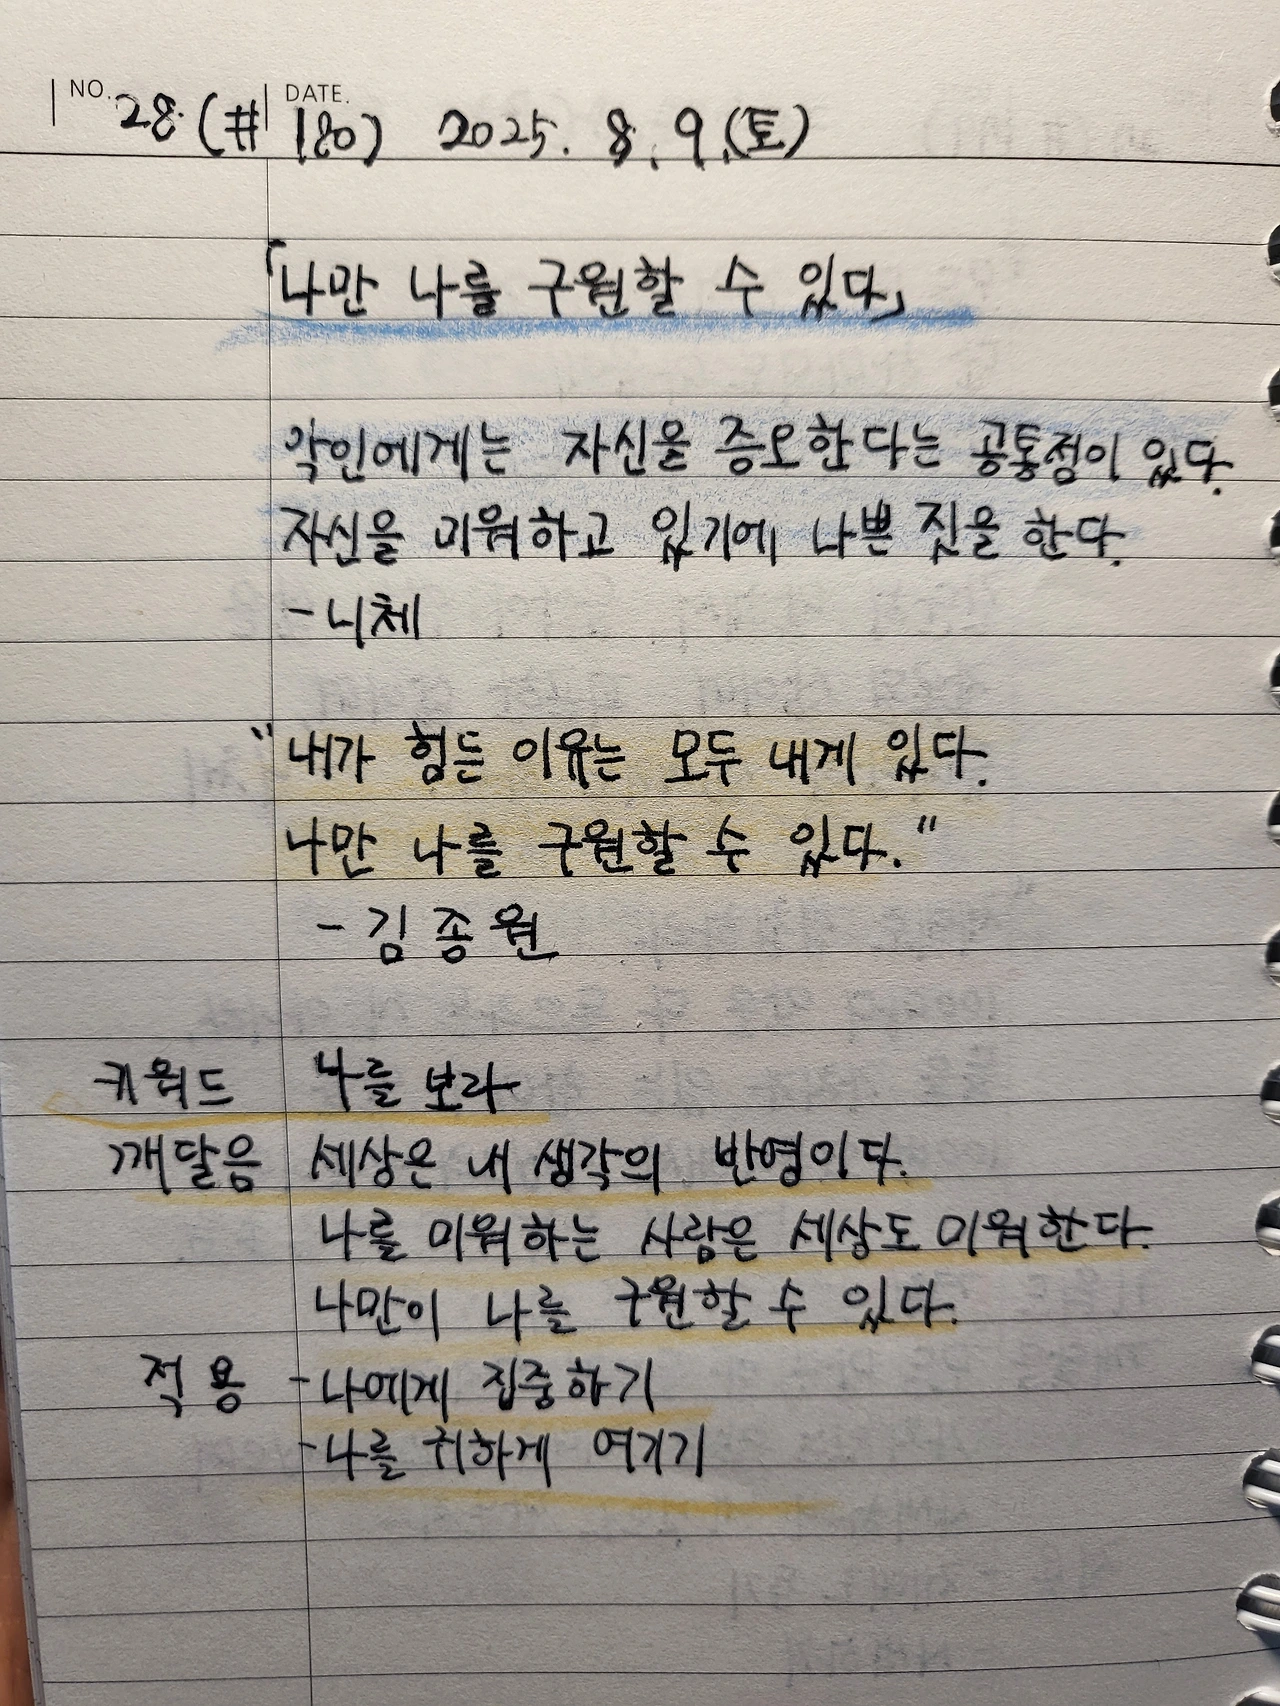 NO. 28 (#180) DATE. 2025. 8. 9. (토)
「나만 나를 구원할 수 있다」
악인에게는 자신을 증오한다는 공통점이 있다.
자신을 미워하고 있기에 나쁜 짓을 한다.
- 니체
"내가 힘든 이유는 모두 내게 있다.
나만 나를 구원할 수 있다."
- 김종원
키워드 나를 보라
깨달음 세상은 내 생각의 반영이다.
나를 미워하는 사람은 세상도 미워한다.
나만이 나를 구원할 수 있다.
적용 - 나에게 집중하기
- 나를 귀하게 여기기